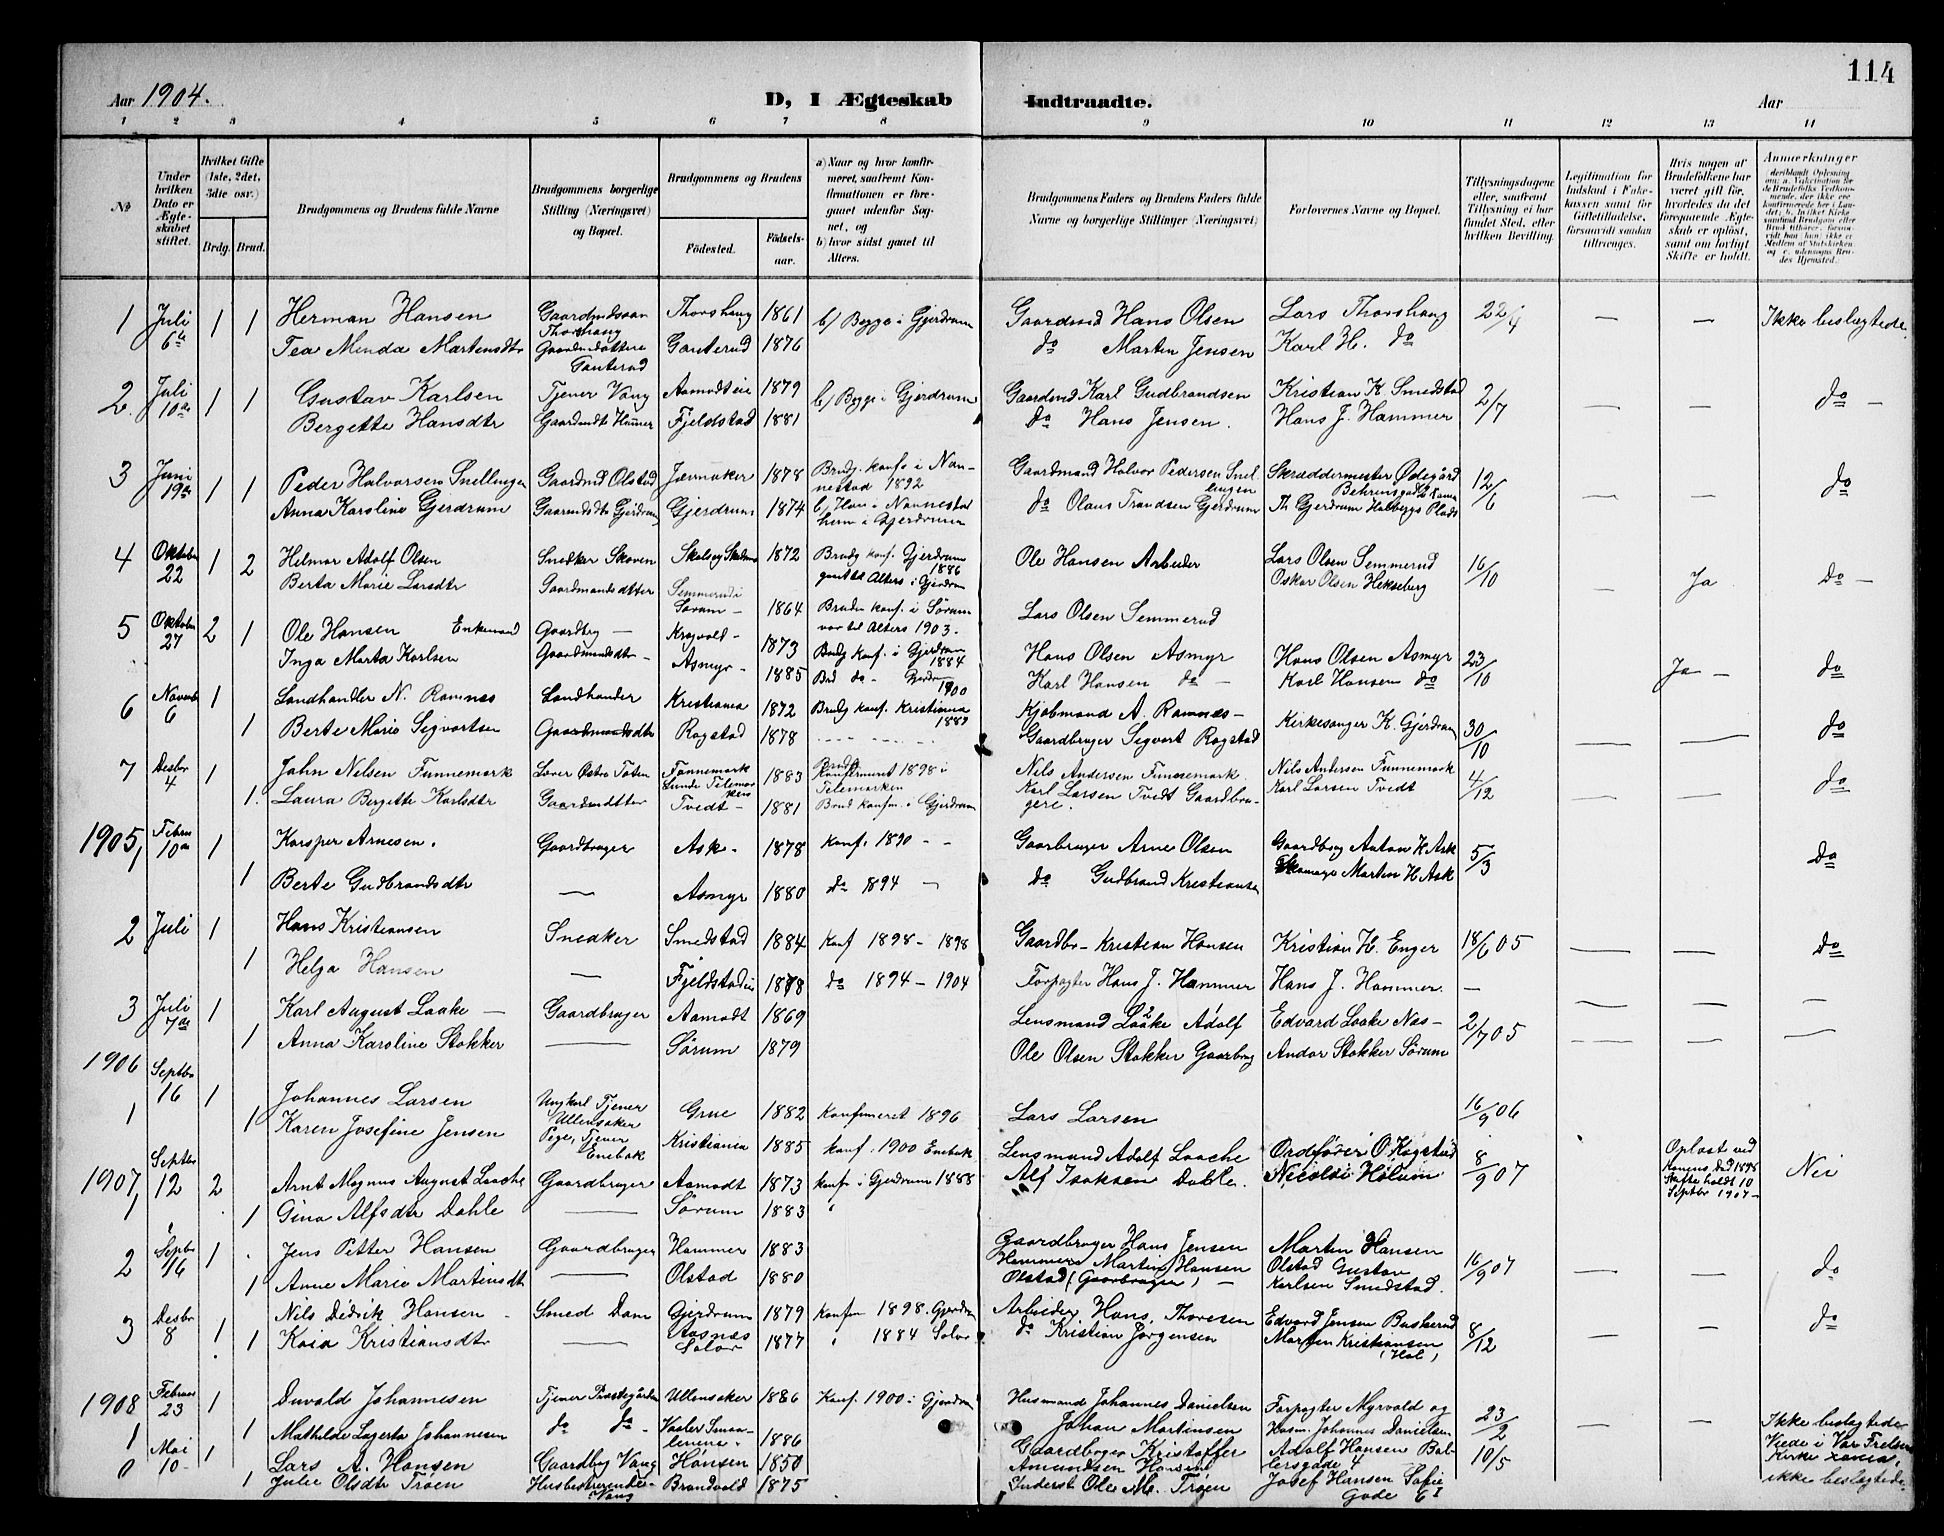 114
Aar 1904. D, I Ægteskab Indtraadte. Aar
1 2 3 4 5 6 7 8 9 10 11 12 13 14
№
Under hvilken Dato er Ægteskabet stiftet.
Hvilket Gifte (1ste, 2det, 3dte osv.)
Brdg. Brud.
Brudgommens og Brudens fulde Navne
Brudgommens borgerlige Stilling (Næringsvei) og Bopæl.
Brudgommens og Brudens
Fødested. Fødselsaar.
a) Naar og hvor konfirmeret, saafremt Konfirmationen er foregaaet udenfor Sognet, og
b) hvor sidst gaaet til Alters.
Brudgommens Faders og Brudens Faders fulde Navne og borgerlige Stillinger (Næringsvei)
Forlovernes Navne og Bopæl.
Tillysningsdagene eller, saafremt Tillysning ei har fundet Sted, efter hvilken Bevilling.
Legitimation for Indskud i Enkekassen samt for Giftetilladelse, forsaavidt saadan tiltrænges.
Hvis nogen af Brudefolkene har været gift før, hvorledes da det foregaaende Ægteskab er opløst, samt om lovligt Skifte er holdt.
Anmærkninger
1 Juli 6te 1 1 Herman Hansen Gaardmdssøn Thorshaug Thorshaug 1861 b/ Begge i Gjerdrum Gaardmd Hans Olsen Lars Thorshaug 22/4 — — Ikke beslægtede.
Tea Minda Martinsdtr Gaardmdsdattene Ganterud Ganterud 1876 do Martin Jensen Karl H. do
2. Juli 10de 1 1 Gustav Karlsen Tjener Vang Aamodteie 1879 b/ Begge i Gjerdrum Gaardmd Karl Gudbrandsen Kristian K. Smedstad 2/7 — — do —
Bergette Hansdtr Gaardmdt Hammer Fjeldstad 1881 do Hans Jensen. Hans J. Hammer
3 Juni 19de 1 1 Peder Halvorsen Snellingen Gaardmd Olstad Jævnaker 1878 Brudg. konf. i Nannestad 1892 Gaardmand Halvor Pedersen Snellingen Skræddermester Ødegård 12/6 — — do
Anna Karoline Gjerdrum Gaardmdsdt Gjerdrum Gjerdrum 1874 b/ Han i Nannestad hun i Gjerdrum do Olaus Trandsen Gjerdrum Th. Gjerdrum Holbergs Plads
4 Oktober 22 1 2 Helmer Adolf Olsen Snedker Skoven 1872 Brudg konf. Gjerdrum 1886 Ole Hansen Arbeider Lars Olsen Semmerud 16/10 — Ja do —
gaat til Alters i Gjerdrum Oskar Olsen Hekseberg
Berta Marie Larsdtr Gaardmandsdtter Semmerud i Sørum — 1864 Bruden konf. i Sørum var til Alters 1903. Lars Olsen Semmerud
5 Oktober 27 2 1 Ole Hansen Enkemand Gaardbrg — Krogvold - 1873 Brudg konf. i Gjerdrum 1884 Hans Olsen Asmyr Hans Olsen Asmyr 23/10 Ja — do
Inga Marta Karlsen Gaardmandsdtr — Asmyr - 1885 Brd do - Gjerdrum 1900 Karl Hansen do — Karl Hansen do
6 Novemb 6 1 Landhandler N. Ramnæs Landhandler Kristiania 1872 Brudg konf. Kristiania 1887 Kjøbmand A. Ramnæs - Kirkesanger K. Gjerdrum 30/10 — — do
1 Berte Marie Sigvartsen Gaardmandsdtr Rogstad 1878 Gaardbruger Sigvart Rogstad
7 Desbr 4 1 John Nilsen Funnemark Østre Toten Funnemark Lunde Telemarken 1883 Brudg Konfirmeret 1898 i Telemarken Nils Andersen Funnemark Nils Andersen Funnemark 4/12 — — do
1. Laura Bergette Karlsdtr Gaardmdtter Tvedt - 1881 Brud konfm. i Gjerdrum Karl Larsen Tvedt Gaardbrugere. Karl Larsen Tvedt
1905, Febru 10de 1 Kasper Arnesen. Gaardbruger Ask - 1878 Konf. 1890 - - Gaarbruger Arne Olsen Gaardbrg Anton H Ask 5/3 do
1 Berte Gudbrandsdtr — Asmyr 1880 do 1894 — do Gudbrand Kristiansen Martin H Ask
2 Juli 1 Hans Kristiansen Snedker Smedstad 1884 Konf 1898 - 1898 Gaardbr - Kristian Hansen Kristian H. Enger 18/6 05 — — do
1 Helga Hansen — Fjeldstad 1878 do 1894 - 1904 Forpagter Hans J. Hammer Hans J. Hammer. —
3 Juli 7de 1 Karl August Laake — Gaardbruger Aamodt 1869 Lensmand Laake Adolf Edvard Laake Næs - 2/7 05 — — —
1 Anna Karoline Stokker — Sørum 1879 Ole Olsen Stokker Gaarbrg Andor Stokker Sørum — — —
1906 Septbr 16 1 Johannes Larsen Ungkarl Tjener Ullensaker Grue 1882 Konfirmeret 1896 Lars Larsen 16/9 06
1 1 Karen Josefine Jensen Pige, Tjener Enebak Kristiania 1885 konf. 1900 Enebak
1907, Septbr 12 2 Arnt Magnus August Laache Gaardbruger Aamodt 1873 konf. i Gjerdrum 1888 Lensmand Adolf Laache Ordfører O Kogstad 8/9 07 Opløst ved Konens Død 1898 Skifte holdt 10 Septbr 1907 - Nei
1 1 Gina Alfsdtr Dahle — Sørum 1883 Alf Isaksen Dahle. Nicolai Holum
2 Septbr 16 1 Jens Petter Hansen Gaardbruger Hammer 1883 Gaardbruger Hans Jensen Hammer Martin Hansen 16/9 07 — — do
1 Anne Marie Martinsdtr — Olstad 1880 Martin Hansen Olstad (Gaarbruger) — Olstad Gustav Karlsen Smedstad.
3 Desbr 8 1 Nils Didrik Hansen Smed Dam Gjerdrum 1879 Konfm 1898. Gjerdrum Arbeider Hans. Thoresen Edvard Jensen Buskerud 8/12 — — do
1 Kaia Kristiansdtr — Aasnæs Solør 1877 " 1884 Solør do Kristian Jørgensen Morten Kristiansen (Hol)
1908 Februar 23 1 Duvald Johannesen Tjener Præstegården Ullensaker 1886 Konf. 1900 i Gjerdrum Husmand Johannes Danielsen Forpagter Myrvold og 23/2 — — Ikke beslægtede
1 1 Mathilde Lagerta Johannesen do do - Vaaler Smaalenene. 1886 Johan Martinsen Husm. Johannes Danielsen
0 Mai 10 - 1 Lars A. Hansen Gaardbrg Vang Hansen 1850 Gaardbruger Kristoffer Amundsen Hansen Adolf Hansen Balkersgade 4 10/5 Viede i Vor Frelsers Kirke
1 Julie Olsdtr Trøen Husbestyrerinde - Vang Brandvold 1875 Inderst Ole M. Trøen Josef Hansen Sofie Gade 6 I ikke beslægtede.